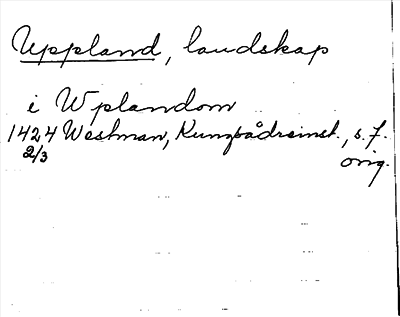 Uppland, landskap
i Wplandom
1424 Westman, Kungsådreinst., s. 7.
2/3 orig.